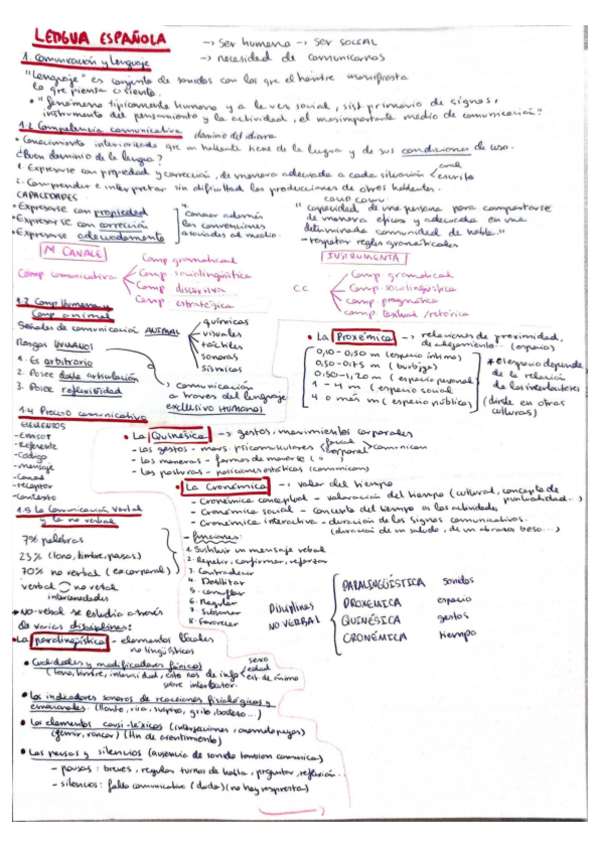 LENGUA ESPAÑOLA
→ Ser humano → Ser SOCIAL
→ necesidad de comunicarnos
1. Comunicación y lenguaje
"Lenguaje" es conjunto de sonidos con los que el hombre manifiesta
lo que piensa o siente.
• "fenómeno típicamente humano y a la vez social, sist. primario de signos,
instrumento del pensamiento y la actividad, el más importante medio de comunicación"
1.2 Competencia comunicativa dominio del idioma
• Conocimiento interiorizado que un hablante tiene de la lengua y de sus condiciones de uso.
¿Buen dominio de la lengua?
1. Expresarse con propiedad y corrección, de manera adecuada a cada situación oral
escrito
2. Comprender e interpretar sin dificultad las producciones de otros hablantes.
CAPACIDADES
• Expresarse con propiedad
• Expresarse con corrección
• Expresarse adecuadamente
4.
conocer además
las convenciones
asociadas al medio.
"capacidad de una persona para comportarse
de manera eficaz y adecuada en una
determinada comunidad de habla."
- respetar reglas gramaticales
M. CANALE
Comp comunicativa
Comp gramatical
Comp. sociolingüística
Comp discursiva
Comp estratégica
INSTRUMENTAL
CC
Comp gramatical
Comp. sociolingüística
comp pragmática
comp textual/retórica
1.3 Comp humana y
Comp animal
Señales de comunicación ANIMAL
químicas
visuales
táctiles
sonoras
sísmicas
Rasgos HUMANOS
1. Es arbitrario
2. Posee doble articulación
3. Posee reflexividad
→ comunicación
a través del lenguaje
exclusivo HUMANOS
• La Proxémica → relaciones de proximidad,
de alejamiento. (espacio)
0,10-0,50 m (espacio íntimo)
0,50-0,75 m (burbuja)
0,50-1,20 m (espacio personal)
1 - 4 m (espacio social
4 o más m (espacio público)
* El espacio depende
de la relación
de los interlocutores
(distinto en otras
culturas)
1.4 Proceso comunicativo
ELEMENTOS
- Emisor
- Referente
- Código
- mensaje
- Canal
- receptor
- contexto
• La Quinésica → gestos, movimientos corporales
- Los gestos - movs. psicomusculares facial
corporal comunican
- Las maneras - formas de moverse (")
- Las posturas - posiciones estáticas (comunicam)
• La Cronémica → valor del tiempo
- Cronémica conceptual - valoración del tiempo (cultural, concepto de
puntualidad...)
- Cronémica social - concepto del tiempo en las actividades
- Cronémica interactiva - duración de los signos comunicativos.
(duración de un saludo, de un abrazo, beso...)
1.5 La Comunicación verbal
y la no verbal
7% palabras
23% (tono, timbre, pausas)
70% no verbal (ex corporal)
verbal no verbal
- funciones:
1. Sustituir un mensaje verbal
2. Repetir, confirmar, reforzar
3. Contradecir
4. Debilitar
5. camuflar
6. Regular
7. Subsanar
8. Favorecer
Disciplinas
NO VERBAL
PARALINGÜÍSTICA sonidos
PROXEMICA espacio
QUINÉSICA gestos
CRONÉMICA tiempo
* NO-verbal se estudia a través
de varias disciplinas:
• La paralingüística - elementos vocales
no lingüísticos
• Cualidades y modificadores fónicos
(tono, timbre, intensidad, esto nos da info
sobre interlocutor.
sexo
edad
est. de ánimo
• Los indicadores sonoros de reacciones fisiológicas y
emocionales. (llanto, risa, suspiro, grito, bostezo...)
• Los elementos cuasi-léxicos (interjecciones, onomatopeyas)
(gemir, roncar) (Hm de asentimiento)
• Las pausas y silencios (ausencia de sonido también comunica)
- pausas: breves, regulan turnos de habla, preguntar, reflexión...
- silencios: fallo comunicativo (duda) (no hay respuesta)